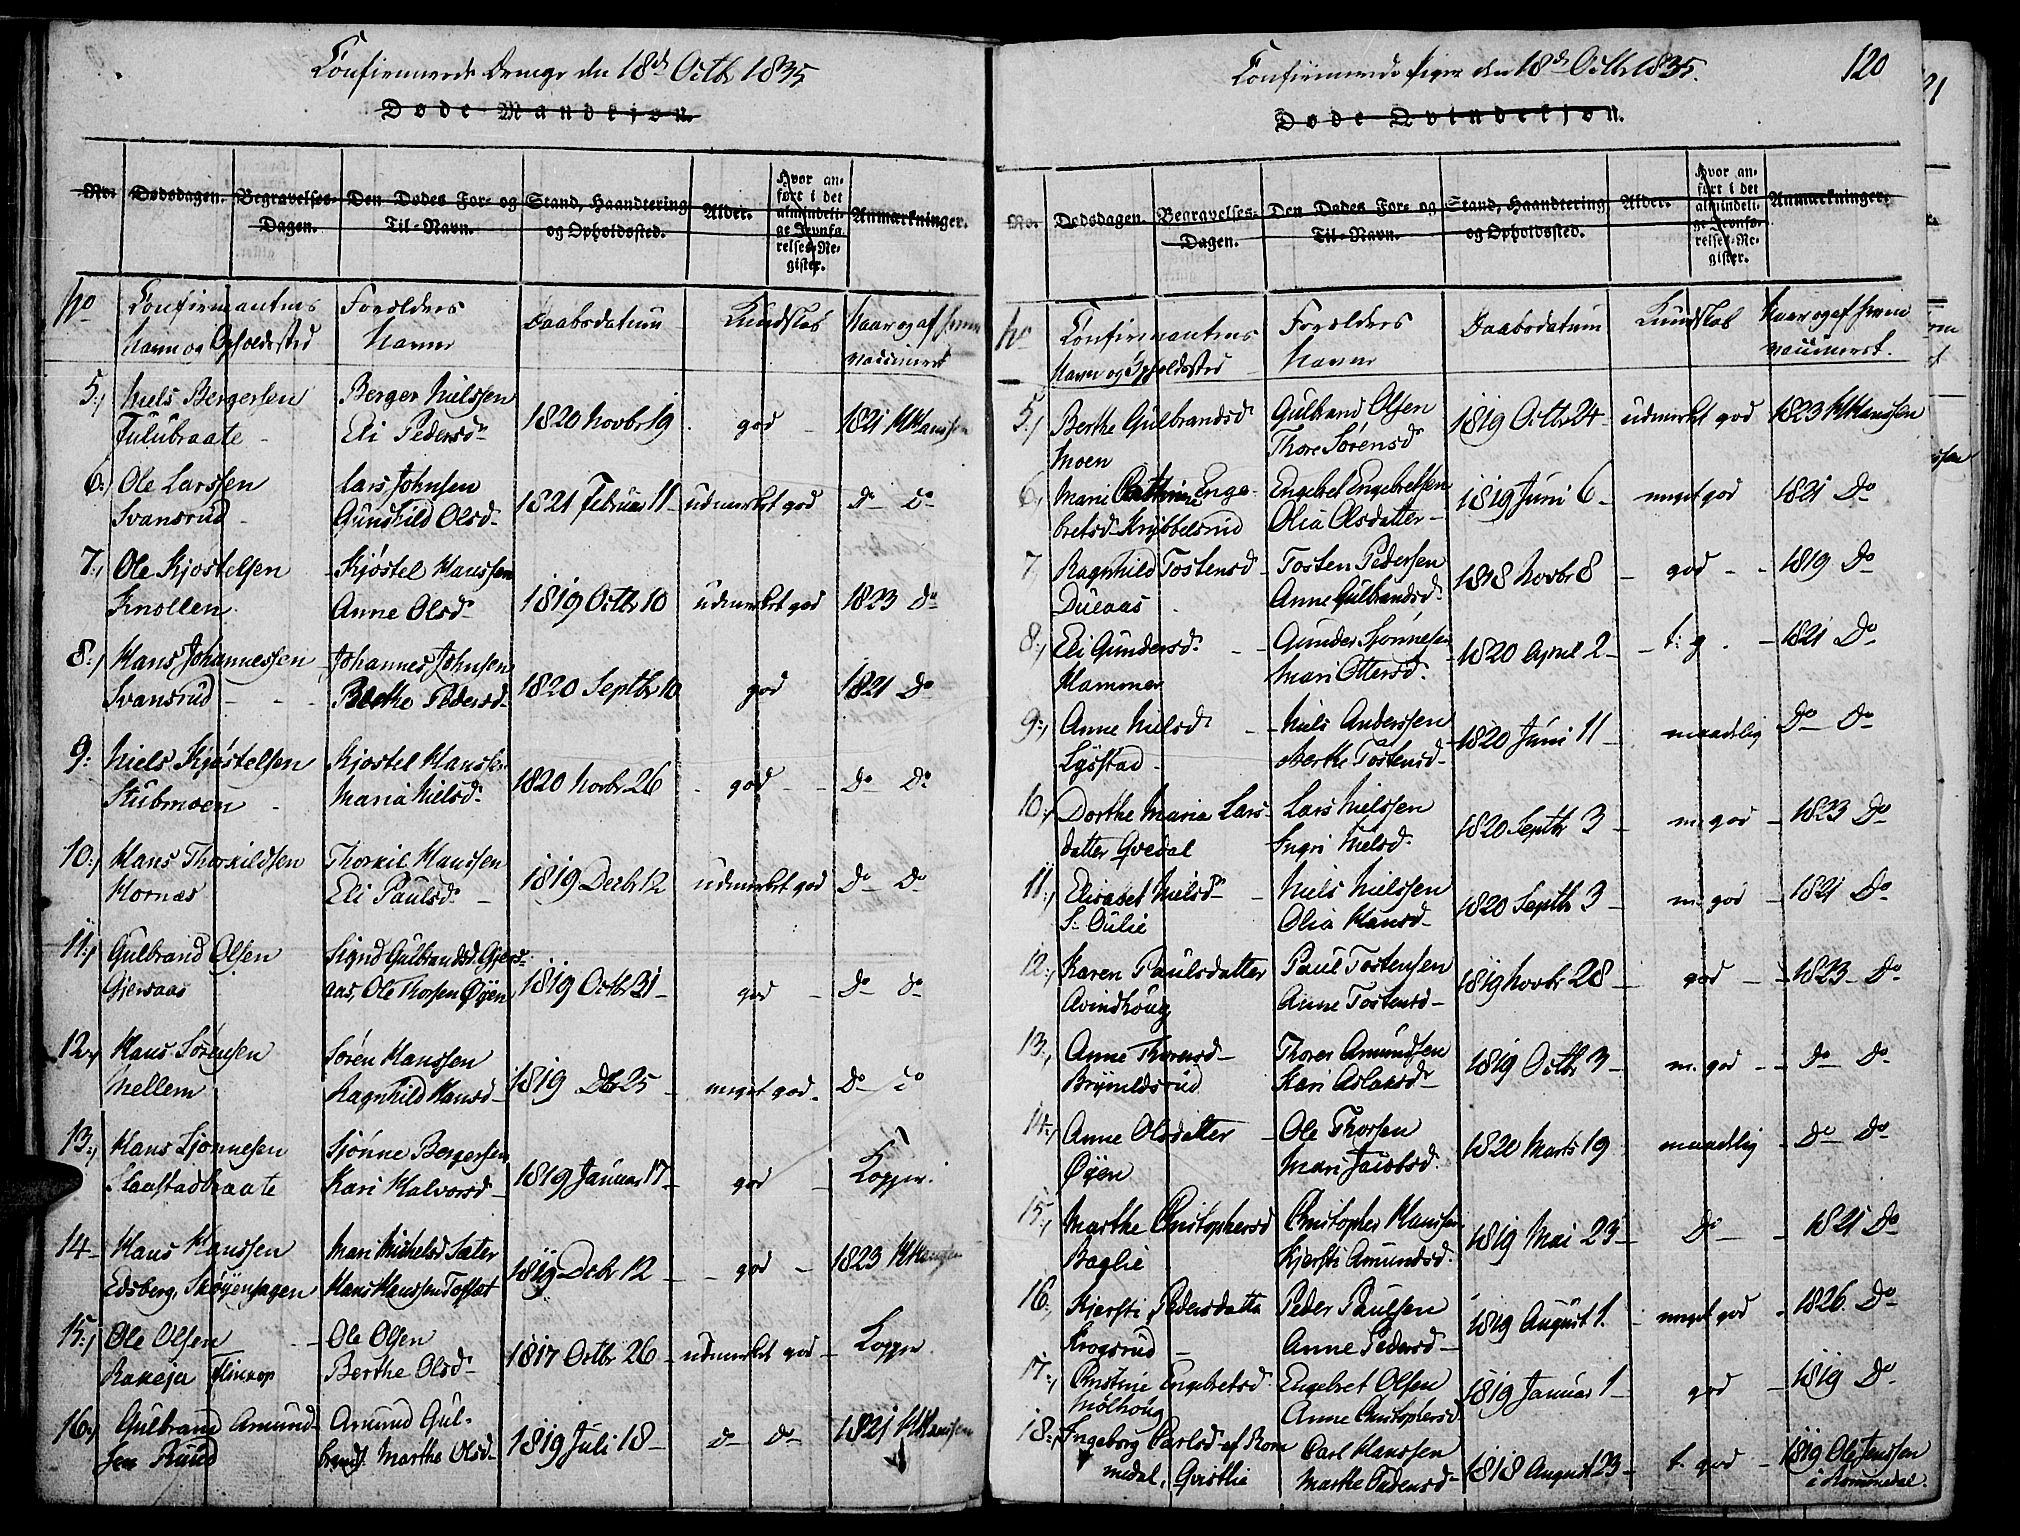 Confirmerede Drenge den 18de Octbr 1835
Døde Mandkjøn.
No. Dødsdagen. Begravelses-Dagen. Den Dødes For- og Til-Navn. Stand, Haandtering og Opholdssted. Alder. Hvor anført i det almindelige Jevnførelses-Register. Anmærkninger.
No Confirmantens Navn og Opholdssted Forældres Navne Daabsdatum Kundskab Naar og af hvem vaccineret
5.) Niels Bergersen Berger Nielssen 1820 Novbr 19 god 1821 HHanssen
Fulubraate Eli Pedersd
6.) Ole Larssen Lars Johnsen 1821 Februar 11 udmerket god Do Do
Svansrud Gunhild Olsd
7.) Ole Kjøstelsen Kjøstel Hanssen 1819 Octbr 10 udmerket god 1823 Do
Knollen Anne Olsd
8.) Hans Johannessen Johannes Johnsen 1820 Septbr 10 god 1821 Do
Svansrud Berthe Pedersd
9. Niels Kjøstelsen Kjøstel Hanssen 1820 Novbr 26 god Do Do
Stubmoen Maria Nielsd
10.) Hans Thorkildsen Thorkil Hanssen 1819 Decbr 12 udmerket god Do Do
Hornæs Eli Paulsd
11.) Gulbrand Olsen Signe Gulbrandsd. Gjers- 1819 Octbr 31 god Do Do
Gjersaas aas, Ole Thorsen Øyen
12.) Hans Sørensen Søren Hanssen 1819 Dbr 25 meget god Do Do
Mellem Ragnhild Hansd
13.) Hans Sjønnesen Sjønne Bergersen 1819 Januar 17 god Kopper.
Haastadbraate Kari Halvorsd
14 Hans Hanssen Mari Michelsd Sæter 1819 Decbr 12 god 1823 HHansen
Edsberg, Skøyenhagen Hans Hanssen Tofsæt
15.) Ole Olsen Ole Olsen 1817 Octbr 26 udmerket god Kopper.
Rakeja Berthe Olsd
16.) Gulbrand Amund- Amund Gul- 1819 Juli 18 Do Do 1821 HHanssen
sen Ruud brands. Marthe Olsd
Confirmerede Piger den 18de Octbr 1835. 120
Døde Qvindekjøn.
No. Dødsdagen. Begravelses-Dagen. Den Dødes For- og Til-Navn. Stand, Haandtering og Opholdssted. Alder. Hvor anført i det almindelige Jevnførelses-Register. Anmærkninger.
No Confirmantens Navn og Opholdssted Forældres Navne Daabsdatum Kundskab Naar og af hvem vaccineret.
5.) Berthe Gulbrandsd Gulbrand Olsen 1819 Octbr 24 udmerket god 1823 HHanssen
Moen Thore Sørensd
6.) Marie Cathrine Enge- Engebret Engebretsen 1819 Juni 6 meget god 1821 Do
bretsd Krybbelsrud Olia Olsdatter
7.) Ragnhild Tostensd Tosten Pedersen 1818 Novbr 8 god 1819 Do
Dueaas Anne Gulbrandsd.
8.) Eli Gundersd. Gunder Sjønnesen 1820 April 2 t. g. 1821 Do
Hammer Mari Ottersd.
9.) Anne Nielsd Niels Anderssen 1820 Juni 11 maadelig Do Do
Lystad Berthe Tostensd
10.) Dorthe Maria Lars- Lars Nielssen 1820 Septbr 3 m. god 1823 Do
datter Qvedal Ingri Nielsd.
11.) Elisabet Nielsd Niels Nielssen 1820 Septbr 3 m. god 1821 Do
S. Oulie Olia Hansd
12.) Karen Paulsdatter Paul Tostensen 1819 Novbr 28 god 1823 Do
Avindhoug Anne Tostensd
13.) Anne Thoresd Thorer Amundsen 1819 Octbr 3 m. god Do Do
Brynildsrud Kari Aslaksd
14.) Anne Olsdatter Ole Thorsen 1820 Marts 19 maadelig Do Do
Øyen Mari Jacobsd.
15.) Marthe Christophersd Christopher Hanssen 1819 Mai 23 Do 1821 Do
Baglie Kjersti Amundsd.
16.) Kjersti Pedersdatter Peder Paulsen 1819 August 1. meget god 1826 Do
Krogsrud Anne Pedersd
17.) Christine Engebretsd Engebret Olsen 1819 Januar 1 god 1819 Do
Mølhoug Anne Christophersd
18.) Ingeborg Carlsd af Rom Carl Hanssen 1818 August 23 t. god 1819 Ole Jenssen
medal, Qvisthie Marthe Pedersd i Rommedal.